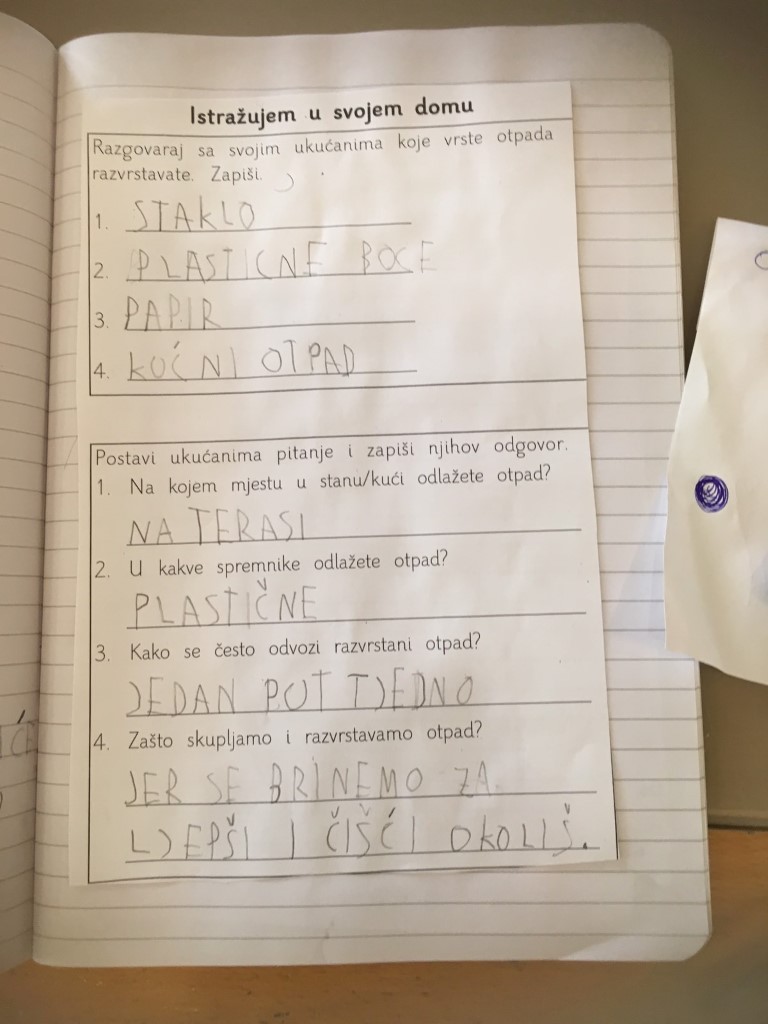 Istražujem u svojem domu
Razgovaraj sa svojim ukućanima koje vrste otpada
razvrstavate. Zapiši.
1. STAKLO
2. PLASTICNE BOCE
3. PAPIR
4. KUĆNI OTPAD
Postavi ukućanima pitanje i zapiši njihov odgovor.
1. Na kojem mjestu u stanu/kući odlažete otpad?
NA TERASI
2. U kakve spremnike odlažete otpad?
PLASTIČNE
3. Kako se često odvozi razvrstani otpad?
JEDAN PUT TJEDNO
4. Zašto skupljamo i razvrstavamo otpad?
JER SE BRINEMO ZA
LJEPŠI I ČIŠĆI OKOLIŠ.